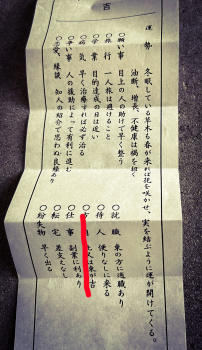 吉
運勢 冬眠している草木も春が来れば花を咲かせ、実を結ぶように運が開けてくる。
油断、増長、不健康は禍を招く
〇願い事 目上の人の助けで早く整う
〇旅行 一人旅は避けること
〇学業 目的達成の日は近い
〇病気 早く治療すれば必ず治る
〇争い事 人の援助によって有利に進む
〇恋愛、縁談 知人の紹介で思わぬ良縁あり
〇就職 東の方に適職あり
〇待人 便りなしに来る
〇方 人は東が吉
〇仕事 副業に利あり
〇転宅 差支えなし
〇紛失物 早く出る